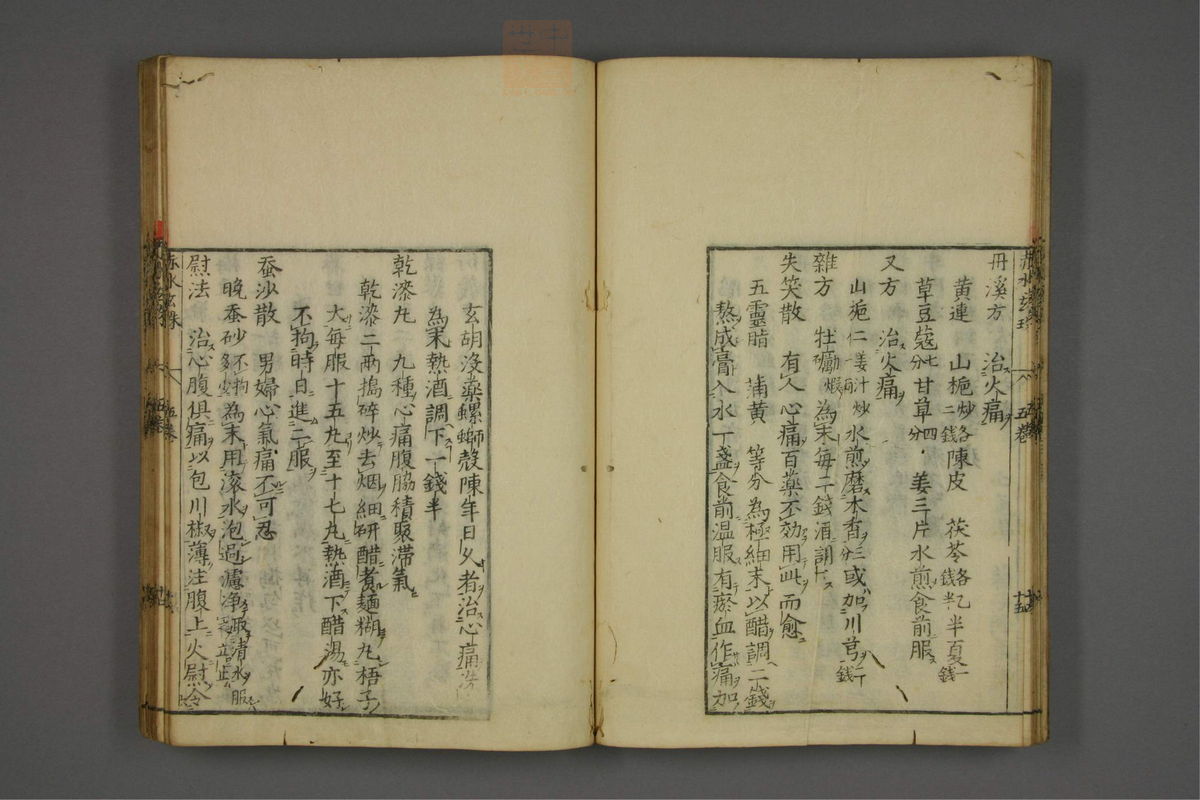 丹溪方　治火痛
黄連　山梔炒各二錢　陳皮　茯苓各錢半　半夏一錢
草豆蔻七分　甘草四分　姜三片水煎食前服
又方　治火痛
山梔仁一兩姜汁炒　水煎磨木香三分或加川芎一錢
雜方　牡礪煅為末每二錢酒調下
失笑散　有人心痛百薬不効用此而愈
五靈脂　蒲黄　等分為極細末以醋調二錢
熬成膏入水一盞食前温服有瘀血作痛加
玄胡没薬螺螄殻陳年日久者治心痛
為末熱酒調下一錢半
乾漆丸　九種心痛腹脇積聚滞氣
乾漆二兩搗碎炒去烟細研醋煮麺糊丸梧子
大每服十五丸至十七丸熱酒下醋湯亦好
不拘時日進二服
蚕沙散　男婦心氣痛不可忍
晩蚕砂不拘多少為末用滚水泡過濾浄取清水服
慰法　治心腹倶痛以包川椒薄注腹上火慰令
赤水玄珠
五巻